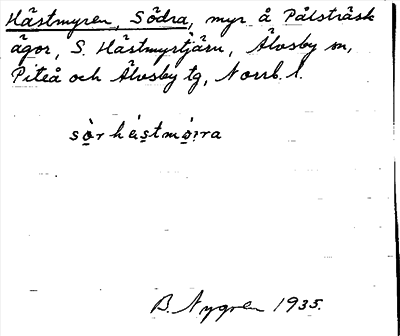 Hästmyren, Södra, myr å Pålsträsk
ägor, S. Hästmyrtjärn, Älvsby sn,
Piteå och Älvsby tg, Norrb. l.
B. Nygren 1935.